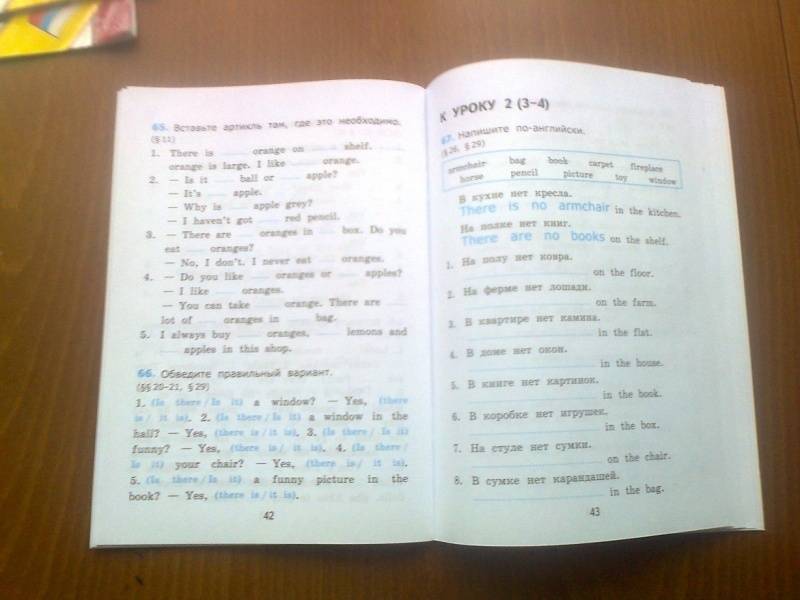 65. Вставьте артикль там, где это необходимо.
(§ 11)
1. There is ___ orange on ___ shelf. ___
orange is large. I like ___ orange.
2. — Is it ___ ball or ___ apple?
— It's ___ apple.
— Why is ___ apple grey?
— I haven't got ___ red pencil.
3. — There are ___ oranges in ___ box. Do you
eat ___ oranges?
— No, I don't. I never eat ___ oranges.
4. — Do you like ___ oranges or ___ apples?
— I like ___ oranges.
— You can take ___ orange. There are ___
lot of ___ oranges in ___ bag.
5. I always buy ___ oranges, ___ lemons and
___ apples in this shop.
66. Обведите правильный вариант.
(§§ 20–21, § 29)
1. (Is there / Is it) a window? — Yes, (there
is / it is). 2. (Is there / Is it) a window in the
hall? — Yes, (there is / it is). 3. (Is there / Is it)
funny? — Yes, (there is / it is). 4. (Is there /
Is it) your chair? — Yes, (there is / it is).
5. (Is there / Is it) a funny picture in the
book? — Yes, (there is / it is).
42
К УРОКУ 2 (3–4)
67. Напишите по-английски.
(§ 26, § 29)
armchair bag book carpet fireplace
horse pencil picture toy window
В кухне нет кресла.
There is no armchair in the kitchen.
На полке нет книг.
There are no books on the shelf.
1. На полу нет ковра.
___ on the floor.
2. На ферме нет лошади.
___ on the farm.
3. В квартире нет камина.
___ in the flat.
4. В доме нет окон.
___ in the house.
5. В книге нет картинок.
___ in the book.
6. В коробке нет игрушек.
___ in the box.
7. На стуле нет сумки.
___ on the chair.
8. В сумке нет карандашей.
___ in the bag.
43